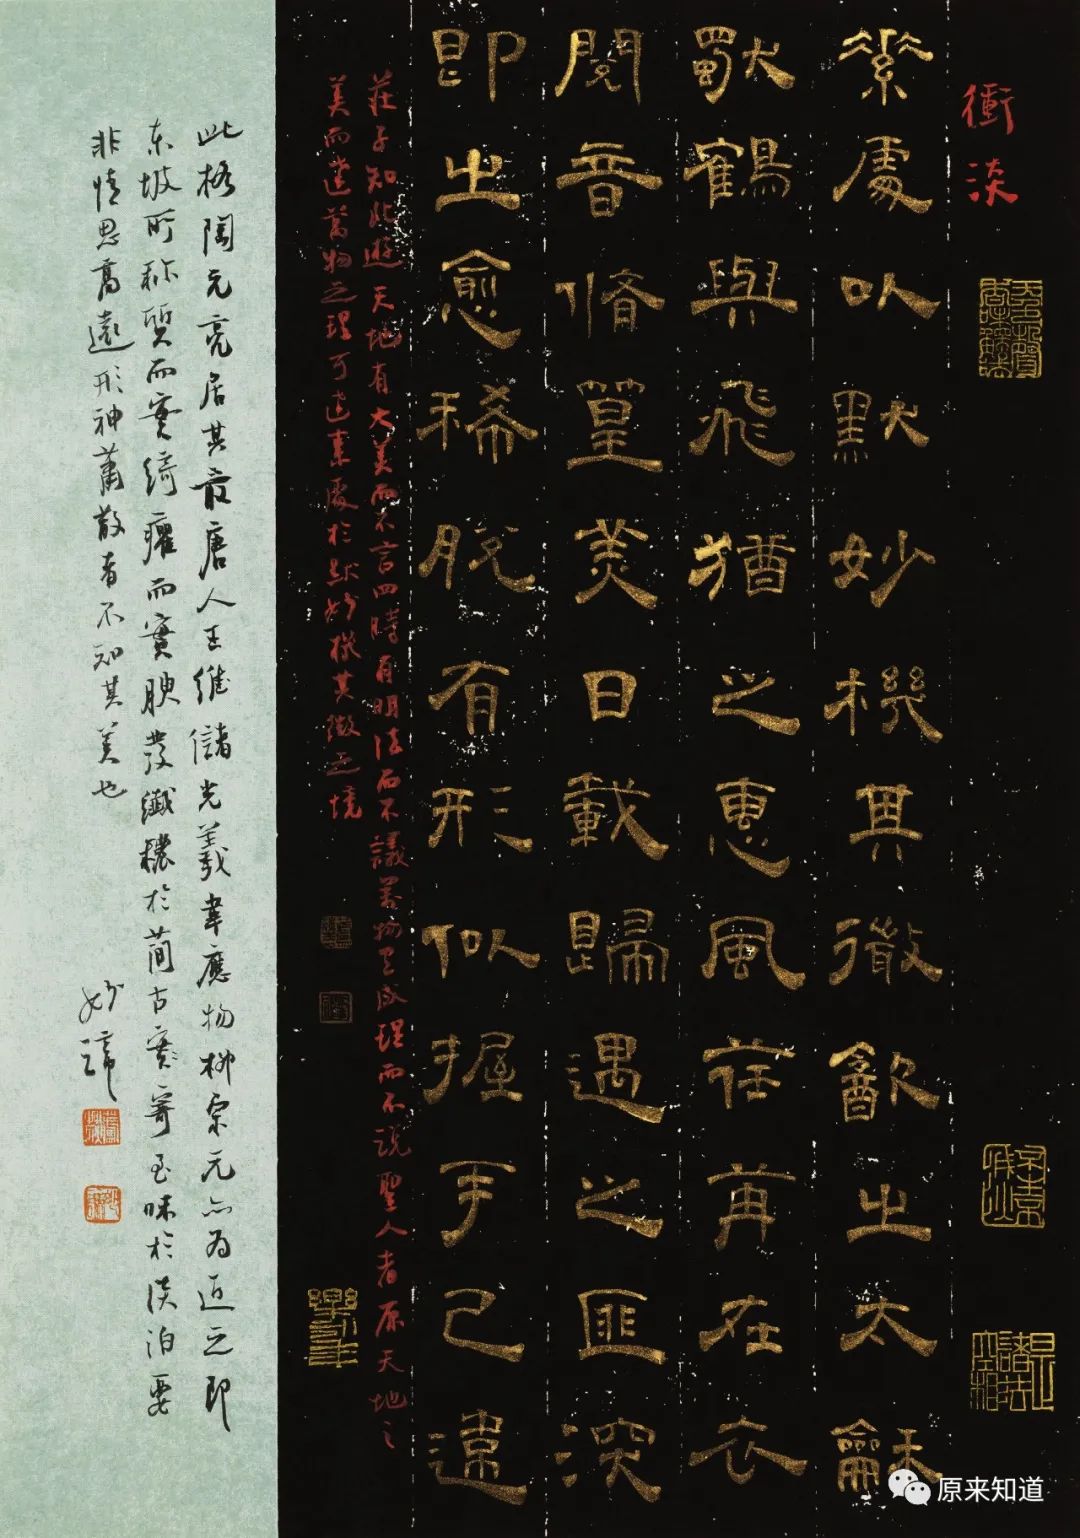 衝淡
素處以默妙機其微飲之太龢
獨鶴與飛猶之惠風荏苒在衣
閱音脩篁美日載歸遇之匪深
即之愈稀脫有形似握手已違
莊子知北遊天地有大美而不言四時有明法而不議萬物有成理而不說聖人者原天地之
美而達萬物之理可達素處於默妙機其微之境
此格陶元亮居其最唐人王維儲光羲韋應物柳宗元亦为近之即
东坡所称質而實綺癯而實腴發纖穠於簡古實寄至味於淡泊要
非情思高遠形神蕭散者不知其美也
妙諦
原来知道